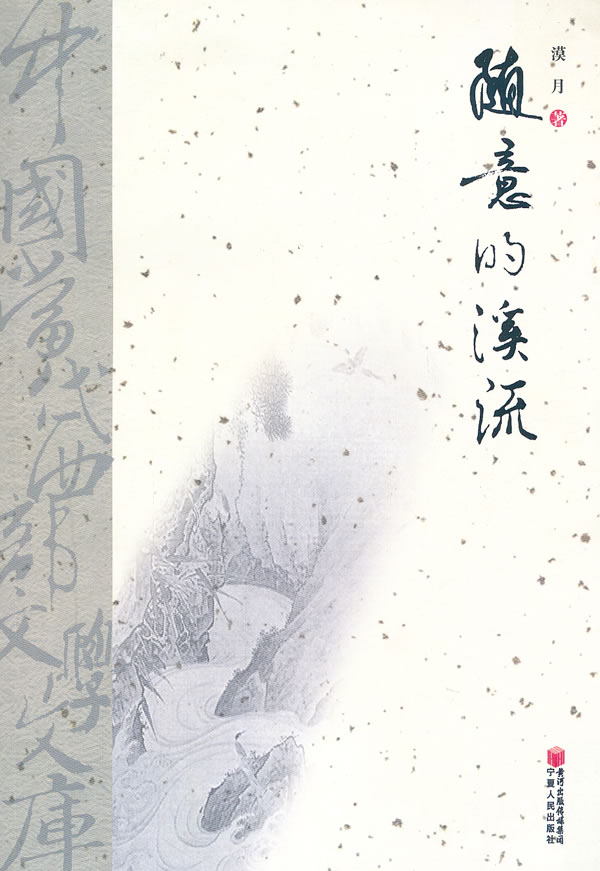 漠月 著
随意的溪流
中國當代西部文學文庫
黄河出版传媒集团
宁夏人民出版社